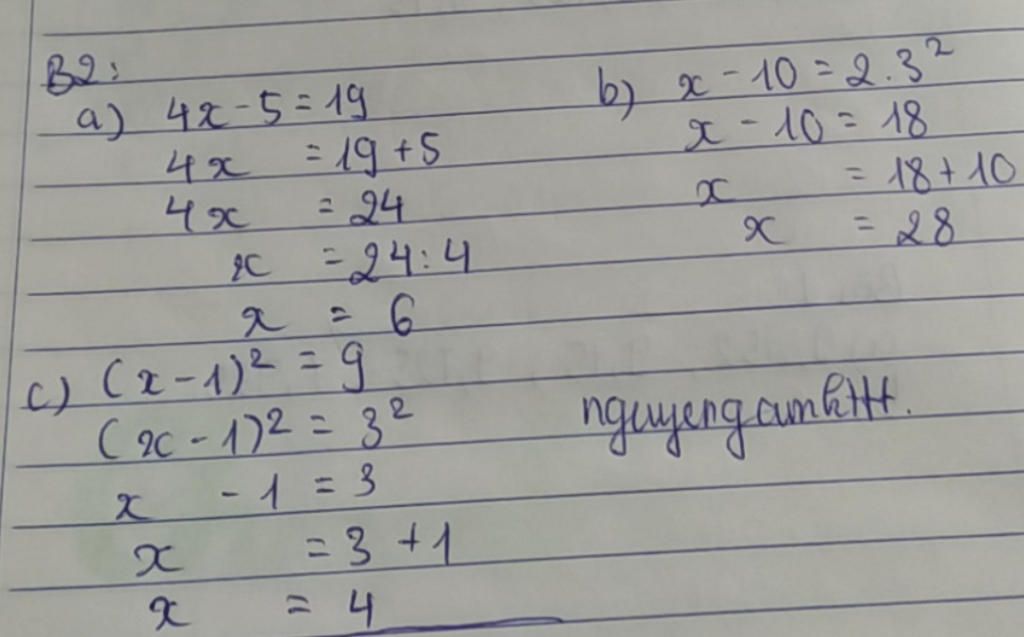 B2:
a) 4x - 5 = 19
4x = 19 + 5
4x = 24
x = 24 : 4
x = 6
b) x - 10 = 2 . 3²
x - 10 = 18
x = 18 + 10
x = 28
c) (x - 1)² = 9
(x - 1)² = 3²
x - 1 = 3
x = 3 + 1
x = 4